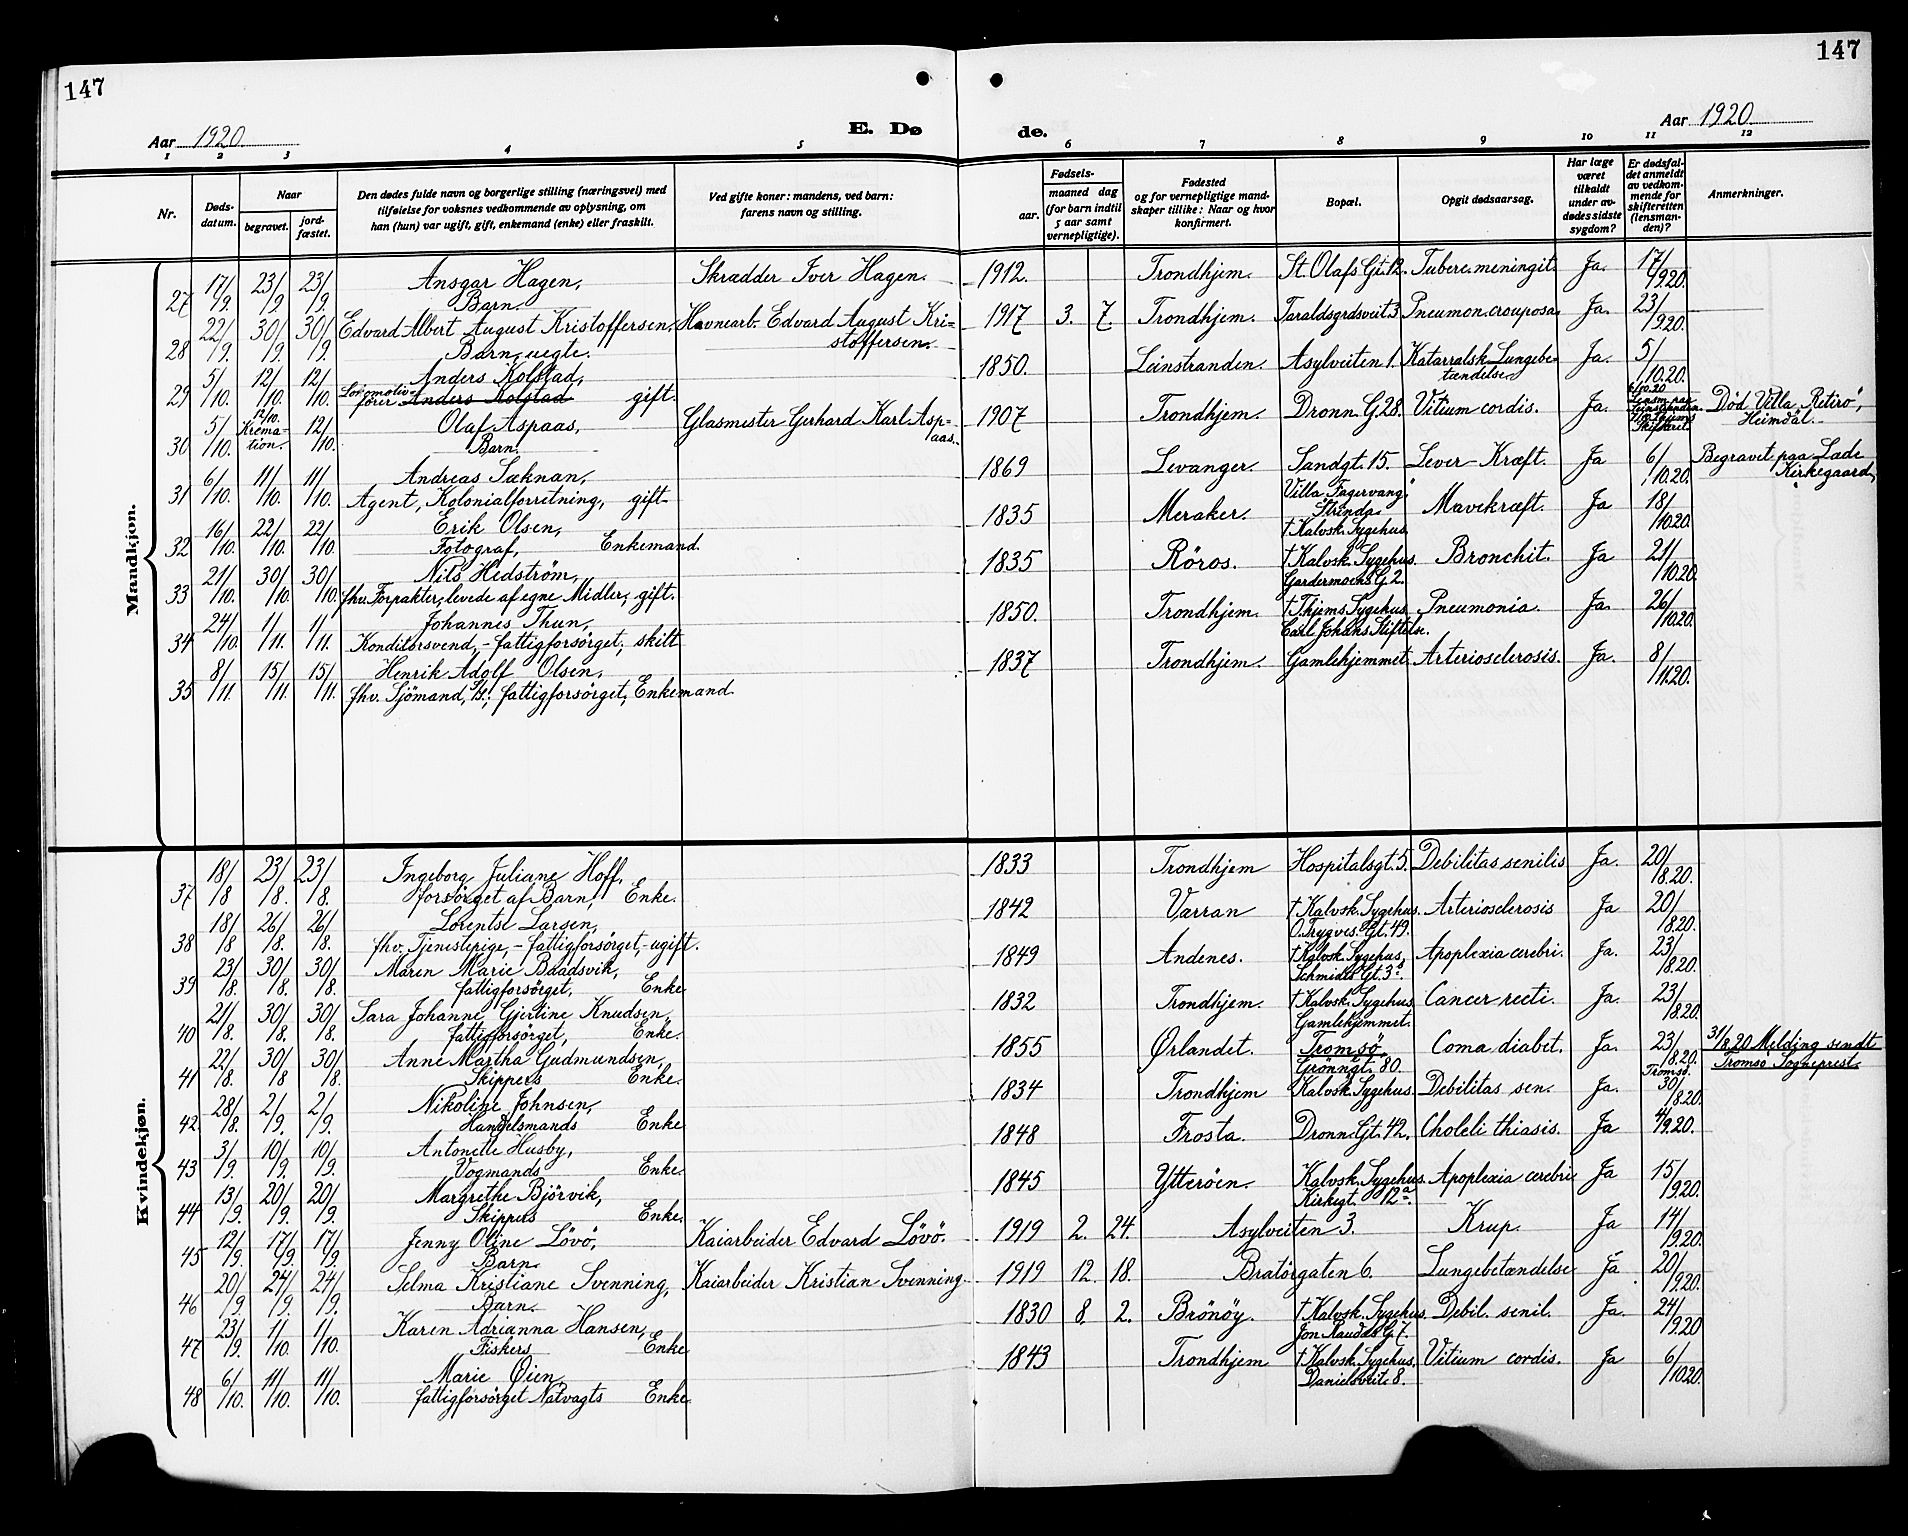 147
147
Aar 1920.
E. Dø
de.
Aar 1920.
1 2 3 4 5 6 7 8 9 10 11 12
Nr.
Døds-
datum.
Naar
begravet.
jord-
fæstet.
Den dødes fulde navn og borgerlige stilling (næringsvei) med
tilføielse for voksnes vedkommende av oplysning, om
han (hun) var ugift, gift, enkemand (enke) eller fraskilt.
Ved gifte koner: mandens, ved barn:
farens navn og stilling.
Fødsels-
aar.
maaned dag
(for barn indtil
5 aar samt
vernepligtige).
Fødested
og for vernepligtige mand-
skaper tillike: Naar og hvor
konfirmert.
Bopæl.
Opgit dødsaarsag.
Har læge
været
tilkaldt
under av-
dødes sidste
sygdom?
Er dødsfal-
det anmeldt
av vedkom-
mende for
skifteretten
(lensman-
den)?
Anmerkninger.
Mandkjøn.
27 17/9. 23/9. 23/9. Ansgar Hagen, Skrædder Iver Hagen. 1912. Trondhjem. St. Olafs Gt. 12. Tuberc. meningit. Ja. 17/9.20.
Barn.
28 22/9. 30/9. 30/9. Edvard Albert August Kristoffersen, Havnearb. Edvard August Kri= 1917 3. 7. Trondhjem. Taraldsgrdsveit 3 Pneumon. crouposa. Ja. 23/9.20.
Barn, uegte. stoffersen.
29 5/10. 12/10. 12/10. Anders Kolstad, 1850. Leinstranden. Asylveiten 1. Katarralsk Lungebe- Ja. 5/10.20.
Lokomotiv- tændelse
fører Anders Kolstad gift.
30 5/10. 12/10. Krema-tion. 12/10. Olaf Aspaas, Glasmester Gerhard Karl Asp= 1907 Trondhjem. Dronn. G. 28. Vitium cordis. Ja. 6/10.20 Død Villa "Retiro",
Barn. aas. Heimdal.
31 6/10. 11/10. 11/10. Andreas Sæknan, 1869 Levanger. Sandgt. 15. Lever-Kræft. Ja 6/10.20. Begravet paa Lade
Agent, Kolonialforretning, gift. Kirkegaard,
32 16/10. 22/10. 22/10. Erik Olsen, 1835 Meraker. Villa Fagervang Strinda Mavekræft. Ja 18/10.20.
Fotograf, Enkemand. † Kalvsk. Sygehus.
33 21/10. 30/10. 30/10. Nils Hedström, 1835 Röros. † Kalvsk. Sygehus. Bronchit. Ja 21/10.20
fhv. Forpakter, levede af egne Midler, gift. Gardermoens G. 2.
34 24/10. 1/11. 1/11. Johannes Thun, 1850. Trondhjem. † Thjems Sygehus, Pneumonia. Ja. 26/10.20.
Konditorsvend, - fattigforsörget, skilt Carl Johans Stiftelse.
35 8/11. 15/11. 15/11. Henrik Adolf Olsen, 1837 Trondhjem. Gamlehjemmet. Arteriosclerosis. Ja. 8/11.20.
fhv. Sjömand, fattigforsörget, Enkemand.
Kvindekjøn.
37 18/8 23/8. 23/8. Ingeborg Juliane Hoff, 1833 Trondhjem Hospitalsgt. 5. Debilitas senilis Ja. 20/8.20.
forsörget af Barn, Enke.
38 18/8 26/8. 26/8. Lorentse Larsen, 1842 Værran † Kalvsk. Sygehus. Arteriosclerosis Ja 20/8.20.
fhv. Tjenestepige, - fattigforsörget, - ugift. O. Trygves. Gt. 49.
39 23/8. 30/8. 30/8. Maren Marie Baadsvik, 1849 Andenes. † Kalvsk. Sygehus, Apoplexia cerebri. Ja. 23/8.20.
fattigforsörget, Enke Schmidts Gt. 3ª.
40 21/8. 30/8. 30/8. Sara Johanne Gjertine Knudsen, 1832 Trondhjem. † Kalvsk. Sygehus Cancer recti. Ja. 23/8.20.
fattigforsörget, Enke. Gamlehjemmet.
41 22/8. 30/8 30/8. Anne Martha Gudmundsen, 1855 Ørlandet. Tromsö, Coma diabet. Ja. 23/8.20. 31/8.20 Melding sendt
Skippers Enke. Grönngt. 80. Tromsö. Tromsö Sogneprest.
42. 28/8. 2/9. 2/9. Nikoline Johnsen, 1834 Trondhjem Kalvsk. Sygehus. Debilitas sen. Ja. 30/8.20.
Handelsmands Enke
43 3/9. 10/9. 10/9. Antonette Husby, 1848 Frosta. Dronn. Gt. 42. Choleli thiasis. Ja 4/9.20.
Vogmands Enke.
44 13/9. 20/9. 20/9. Margrethe Björvik, 1845 Ytteröen. Kalvsk. Sygehus. Apoplexia cerebri Ja 15/9.20.
Skippers Enke. Kirkegt. 12ª.
45 12/9. 17/9. 17/9. Jenny Oline Lövö, Kaiarbeider Edvard Lövö. 1919 2. 24. Asylveiten 3. Krup. Ja 14/9.20.
Barn.
46 20/9. 24/9. 24/9. Selma Kristiane Svenning, Kaiarbeider Kristian Svenning. 1919 12. 18. Bratörgaten 6. Lungebetændelse Ja 20/9.20.
Barn.
47 23/9. 1/10. 1/10. Karen Adrianna Hansen, 1830 8. 2. Brönöy. † Kalvsk. Sygehus. Debil. senil. Ja. 24/9.20
Fiskers Enke Jon Raudes G. 7.
48 6/10. 11/10. 11/10. Marie Øien, 1843 Trondhjem † Kalvsk. Sygehus, Vitium cordis. Ja 6/10.20.
fattigforsörget Natvagts Enke. Danielsveit. 8.